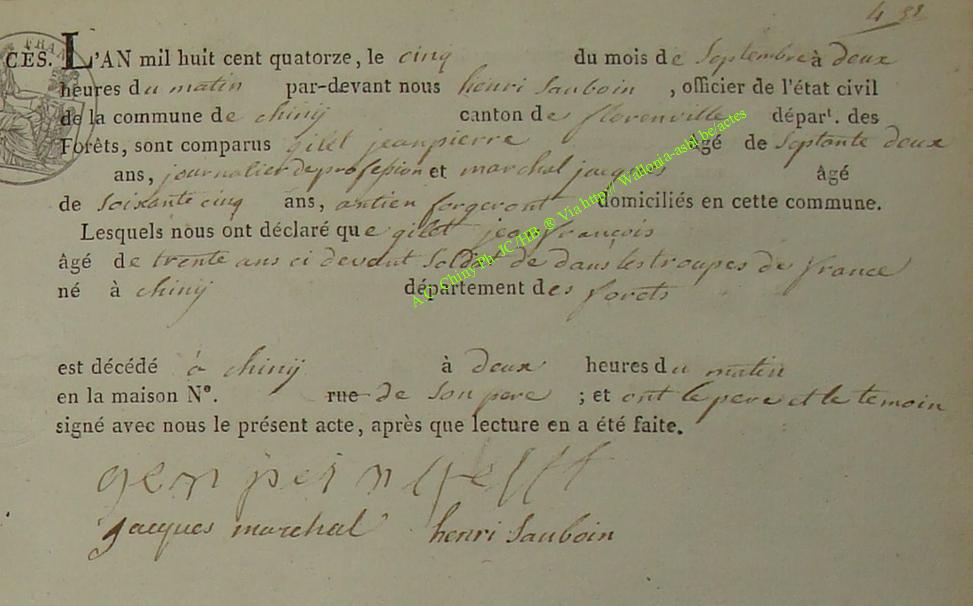 4 32
CES. L'AN mil huit cent quatorze, le cinq du mois de Septembre à deux
heures du matin par-devant nous henri Sauboin , officier de l'état civil
de la commune de chinÿ canton de florenville départ. des
Forêts, sont comparus gilet jeanpierre âgé de Septante deux
ans, journalier de profession et marchal jacques âgé
de Soixante cinq ans, antien forgeront domiciliés en cette commune.
Lesquels nous ont déclaré que gilet jean françois
âgé de trente ans ci devant Soldat de dans les troupes de france
né à chinÿ département des forets
est décédé à chinÿ à deux heures du matin
en la maison N°. rue de Son pere ; et ont le pere et le temoin
signé avec nous le présent acte, après que lecture en a été faite.
jacques marchal henri Sauboin
FRAN
A.C. Chiny Ph. JC /HB ® Via http:// Wallonia-asbl.be/actes